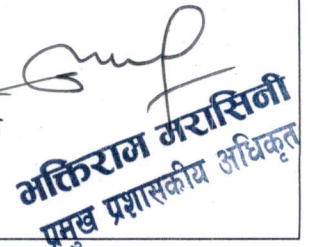 भक्तिराज मरासिनी
प्रमुख प्रशासकीय अधिकृत